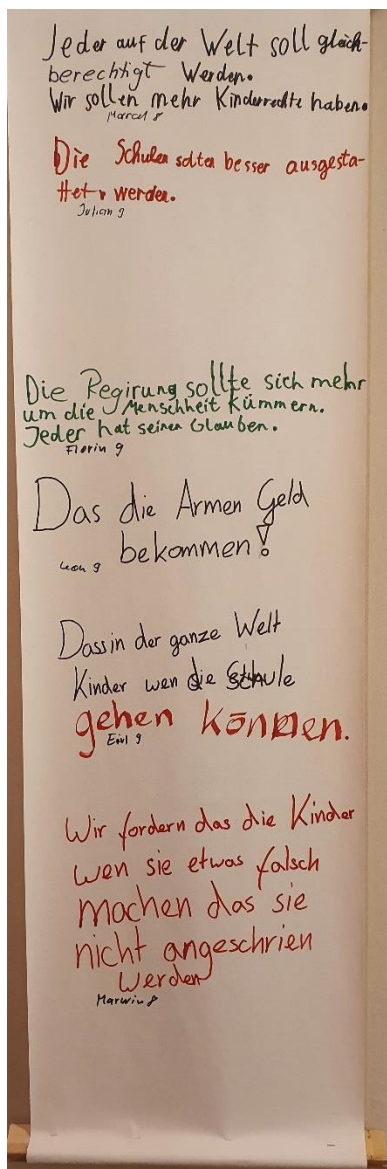 Jeder auf der Welt soll gleich-
berechtigt Werden.
Wir sollen mehr Kinderrechte haben.
Marcel 8
Die Schulen solten besser ausgesta-
ttet werden.
Julian 9
Die Regirung sollte sich mehr
um die Menschheit Kümmern.
Jeder hat seinen Glauben.
Florin 9
Das die Armen Geld
bekommen!
Leon 9
Dass in der ganze Welt
Kinder wen die Schule
gehen können.
9
Wir fordern das die Kinder
wen sie etwas falsch
machen das sie
nicht angeschrien
Werden
Marwin 8